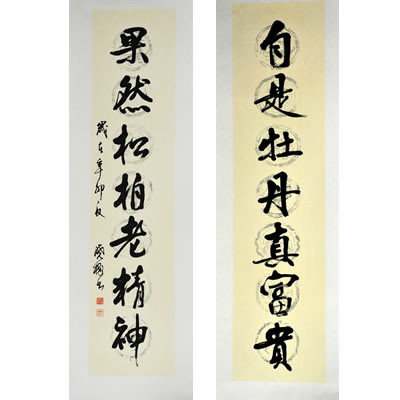 自是牡丹真富貴
果然松柏老精神
歲在辛卯秋